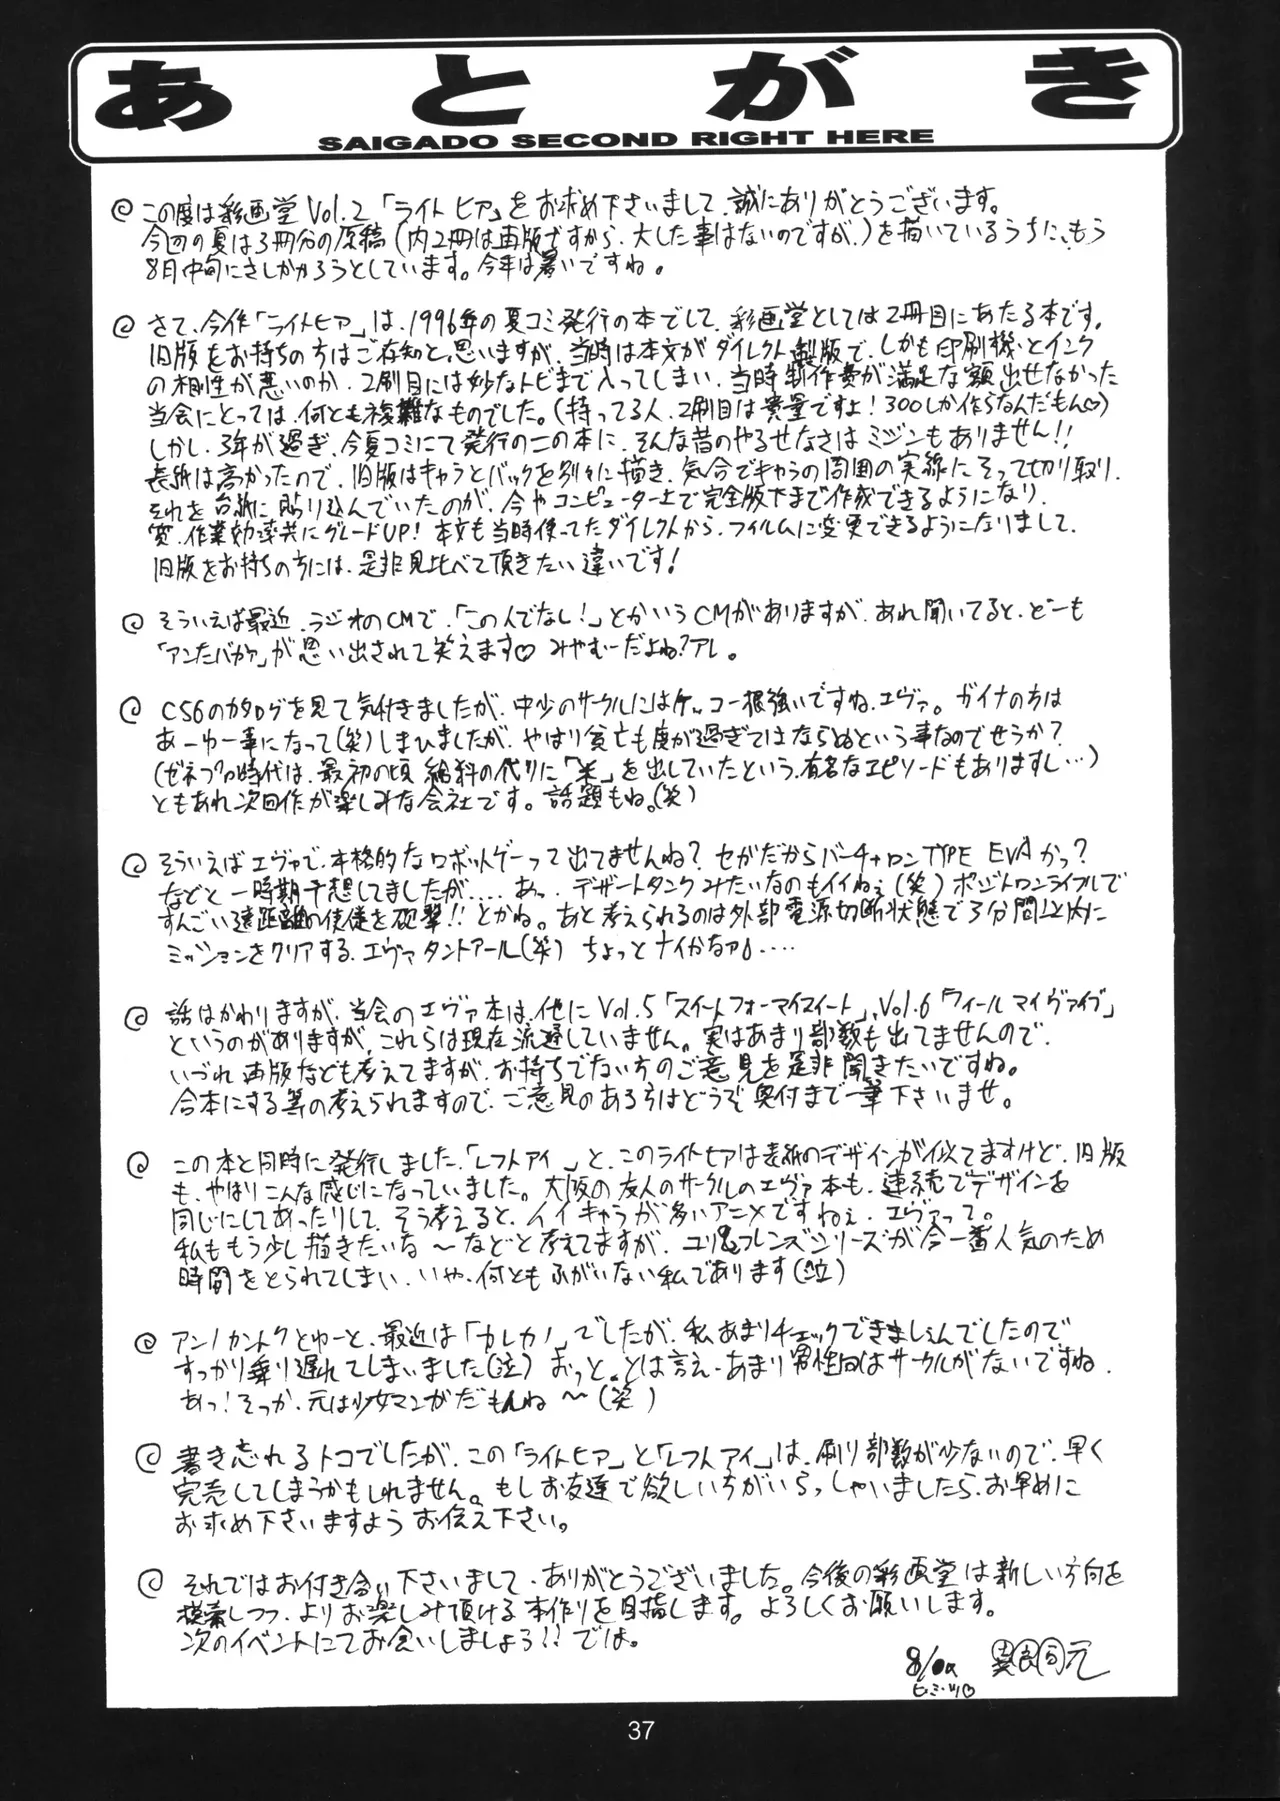 あとがき
SAIGADO SECOND RIGHT HERE
この度は彩画堂Vol.2「ライトヒア」をお求め下さいまして、誠にありがとうございます。
今回の夏は3冊分の原稿(内2冊は再版ですから、大した事はないのですが、)を描いているうちに、もう
8月中旬にさしかかろうとしています。今年は暑いですね。
さて、今作「ライトヒア」は、1996年の夏コミ発行の本でして、彩画堂としては2冊目にあたる本です。
旧版をお持ちの方はご存知と思いますが、当時は本文がダイレクト製版で、しかも印刷機とインク
の相性が悪いのか、2刷目には妙なトビまで入ってしまい、当時制作費が満足な額出せなかった
当会にとっては、何とも複雑なものでした。(持ってる人、2刷目は貴重ですよ！300しか作らなんだもん♡)
しかし、3年が過ぎ、今夏コミにて発行のこの本に、そんな昔のやるせなさはミジンもありません!!
表紙は高かったので、旧版はキャラとバックを別々に描き、気合でキャラの周囲の実線にそって切り取り、
それを台紙に貼り込んでいたのが、今やコンピューター上で完全版下まで作成できるようになり、
質、作業効率共にグレードUP！本文も当時使ってたダイレクトから、フィルムに変更できるようになりまして、
旧版をお持ちの方には、是非見比べて頂きたい違いです！
そういえば最近、ラジオのCMで、「この人でなし！」とかいうCMがありますが、あれ聞いてると、どーも
「アンたバカァ」が思い出されて笑えます♡ みやむーだよね？アレ。
C56のカタログを見て気付きましたが、中少のサークルにはケッコー根強いですね、エヴァ。ガイナの方は
あーゆー事になって(笑)しまひましたが、やはり貧亡も度が過ぎてはならぬという事なのでせうか？
(ゼネプロ時代は、最初の頃給料の代りに「米」を出していたという、有名なエピソードもありますし…)
ともあれ次回作が楽しみな会社です。話題もね。(笑)
そういえばエヴァで、本格的なロボットゲーって出てませんね？セガだからバーチャロンTYPE EVAかっ？
などと一時期予想してましたが…‥あっ、デザートタンクみたいなのもイイねぇ(笑)ポジトロンライフルで
すんごい遠距離の使徒を砲撃!!とかね。あと考えられるのは外部電源切断状態で3分間以内に
ミッションをクリアする、エヴァタントアール(笑) ちょっとナイかなァ。…‥
話はかわりますが、当会のエヴァ本は、他にVol.5「スイートフォーマイスイート」、Vol.6「フィールマイヴァイブ」
というのがありますが、これらは現在流通していません。実はあまり部数も出てませんので、
いづれ再版なども考えてますが、お持ちでない方のご意見を是非聞きたいですね。
合本にする等の考えられますので、ご意見のある方はどうぞ奥付まで一筆下さいませ。
この本と同時に発行しました、「レフトアイ」と、このライトヒアは表紙のデザインが似てますけど、旧版
も、やはりこんな感じになっていました。大阪の友人のサークルのエヴァ本も、連続でデザインを
同じにしてあったりして、そう考えると、イイキャラが多いアニメですねぇ、エヴァって。
私ももう少し描きたいな〜などと考えてますが、ユリ&フレンズシリーズが今一番人気のため
時間をとられてしまい、いや、何ともふがいない私であります(泣)
アンノカントクとゆーと、最近は「カレカノ」でしたが、私あまりチェックできましぇんでしたので
すっかり乗り遅れてしまいました(泣) おっと、とは言え、あまり男性向はサークルがないですね、
あっ！そっか、元は少女マンガだもんね〜(笑)
書き忘れるトコでしたが、この「ライトヒア」と「レフトアイ」は、刷り部数が少ないので、早く
完売してしまうかもしれません。もしお友達で欲しい方がいらっしゃいましたら、お早めに
お求め下さいますようお伝え下さい。
それではお付き合い下さいまして、ありがとうございました。今後の彩画堂は新しい方向を
模索しつつ、よりお楽しみ頂ける本作りを目指します。よろしくお願いします。
次のイベントにてお会いしましょう!!では。
37